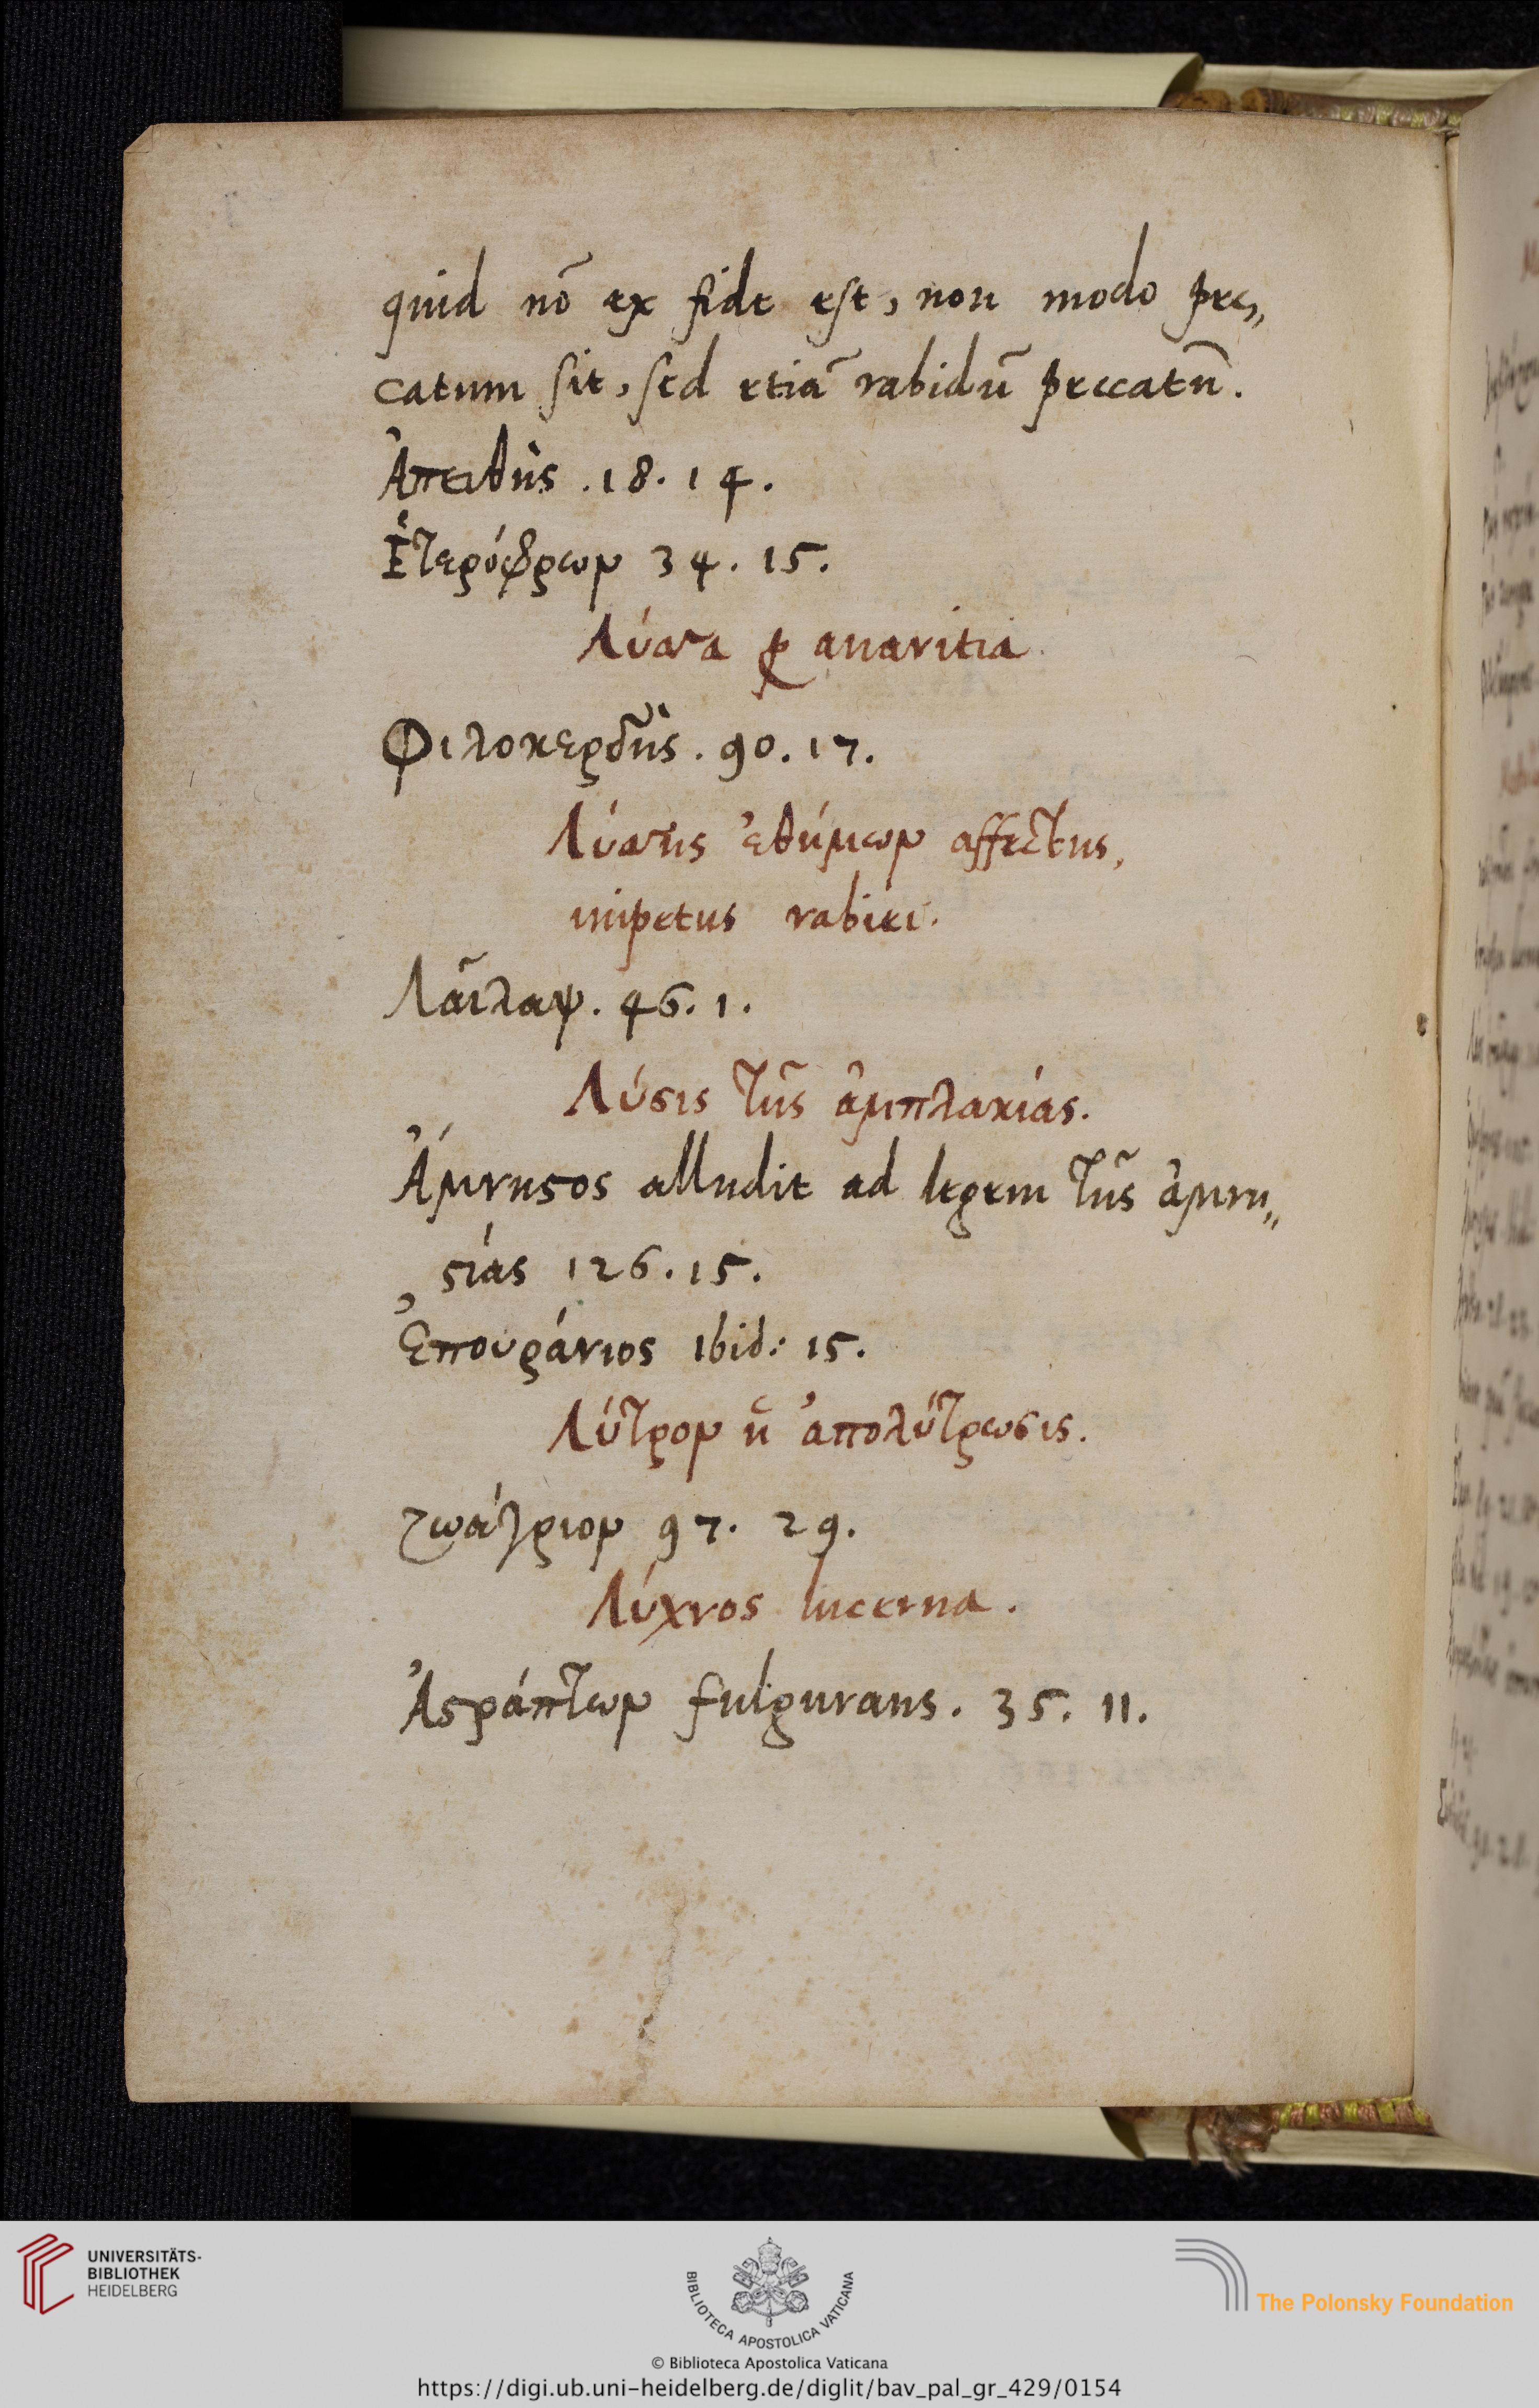 quid nõ ex fide est, non modo pec„
catum sit, sed etiã rabidũ peccatũ.
Ἀπειθὴς . 18. 14.
Ἑτερόφρων 34. 15.
Λύσσα ꝓ auaritia.
Φιλοκερδὴς . 90. 17.
Λύσσης affectus,
impetus rabiei.
Λαῖλαψ. 46. 1.
Λύσις τῆς ἀμπλακίας.
Ἄμνηστος alludit ad legem τῆς ἀμνη„
στίας 126. 15.
Ἐπουράνιος ibid: 15.
Λύτρον ἢ ἀπολύτρωσις.
ζωάγριον 97. 29.
Λύχνος lucerna.
Ἀστράπτων fulgurans. 35. 11.
UNIVERSITÄTS-
BIBLIOTHEK
HEIDELBERG
BIBLIOTECA APOSTOLICA VATICANA
The Polonsky Foundation
© Biblioteca Apostolica Vaticana
https://digi.ub.uni-heidelberg.de/diglit/bav_pal_gr_429/0154